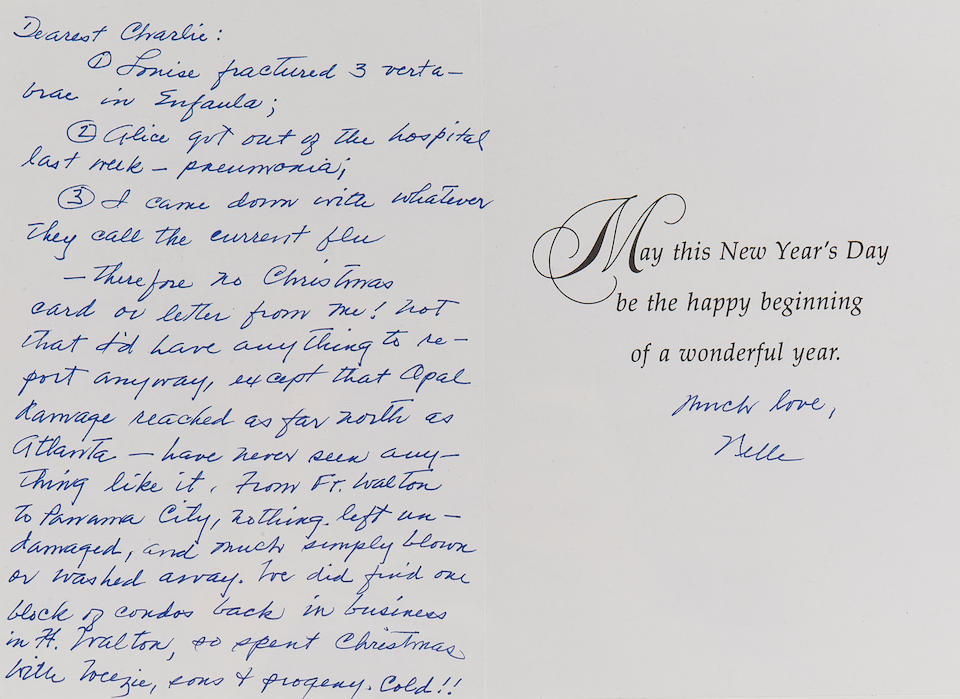 Dearest Charlie:
① Louise fractured 3 verta-
brae in Eufaula;
② Alice got out of the hospital
last week – pneumonia;
③ I came down with whatever
they call the current flu
– therefore no Christmas
card or letter from me! Not
that I'd have anything to re-
port anyway, except that Opal
damage reached as far north as
Atlanta – have never seen any-
thing like it. From Ft. Walton
to Panama City, nothing left un-
damaged, and much simply blown
or washed away. We did find one
block of condos back in business
in Ft. Walton, so spent Christmas
with Weezie, sons & progeny. Cold!!
May this New Year's Day
be the happy beginning
of a wonderful year.
Much love,
Nelle